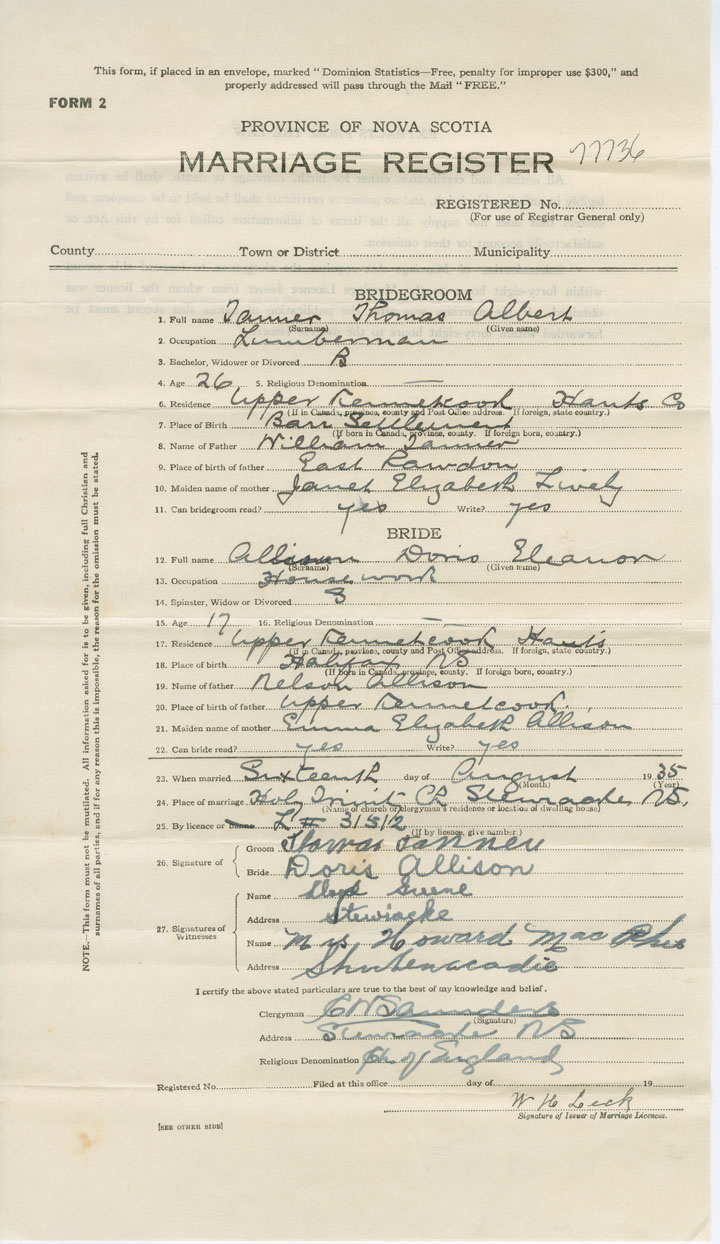 This form, if placed in an envelope, marked "Dominion Statistics—Free, penalty for improper use $300," and
properly addressed will pass through the Mail "FREE."
FORM 2
PROVINCE OF NOVA SCOTIA
MARRIAGE REGISTER 77736
REGISTERED No.
(For use of Registrar General only)
County Town or District Municipality
BRIDEGROOM
1. Full name Tanner Thomas Albert
(Surname) (Given name)
2. Occupation Lumberman
3. Bachelor, Widower or Divorced B
4. Age 26 5. Religious Denomination —
6. Residence Upper Kennetcook Hants Co
(If in Canada, province, county and Post Office address. If foreign, state country.)
7. Place of Birth Barr Settlement
(If born in Canada, province, county. If foreign born, country.)
8. Name of Father William Tanner
9. Place of birth of father East Rawdon
10. Maiden name of mother Janet Elizabeth Lively
11. Can bridegroom read? yes Write? yes
BRIDE
12. Full name Allison Doris Eleanor
(Surname) (Given name)
13. Occupation Housework
14. Spinster, Widow or Divorced S
15. Age 17 16. Religious Denomination —
17. Residence Upper Kennetcook Hants
(If in Canada, province, county and Post Office address. If foreign, state country.)
18. Place of birth Halifax NS
(If born in Canada, province, county. If foreign born, country.)
19. Name of father Nelson Allison
20. Place of birth of father Upper Kennetcook.
21. Maiden name of mother Emma Elizabeth Allison
22. Can bride read? yes Write? yes
23. When married Sixteenth day of August 1935
(Month) (Year)
24. Place of marriage Holy Trinit Ch Stewiacke NS.
(Name of church or clergyman's residence or location of dwelling house)
25. By licence or banns L # 31512
(If by licence, give number.)
26. Signature of Groom Thomas Tanner
Bride Doris Allison
27. Signatures of Witnesses Name Lloyd Greene
Address Stewiacke
Name Mrs Howard Mac Phee
Address Shubenacadie
I certify the above stated particulars are true to the best of my knowledge and belief.
Clergyman Saunders
(Signature)
Address Stewiacke NS
Religious Denomination Ch of England
Registered No. Filed at this office day of 19
W H Leck
Signature of Issuer of Marriage Licences.
[SEE OTHER SIDE]
NOTE.—This form must not be mutilated. All information asked for is to be given, including full Christian and
surnames of all parties, and if for any reason this is impossible, the reason for the omission must be stated.